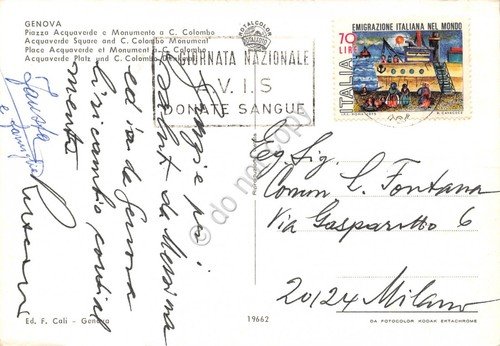 GENOVA
Piazza Acquaverde e Monumento a C. Colombo
Acquaverde Square and C. Colombo Monument
Place Acquaverde et Monument a C. Colombo
Acquaverde Platz und C. Colombo
FOTALCOLOR
GIORNATA NAZIONALE
A.V.I.S
DONATE SANGUE
EMIGRAZIONE ITALIANA NEL MONDO
70
LIRE
ITALIA
Grazie per i
saluti da Messina
ed io da Genova
li ricambio cordial
mente
Fausta
e famiglia
Eg. Sig.
Comm L. Fontana
Via Gasparotto 6
20124 Milano
Ed. F. Cali - Genova
19662
DA FOTOCOLOR KODAK EKTACHROME
© do not copy